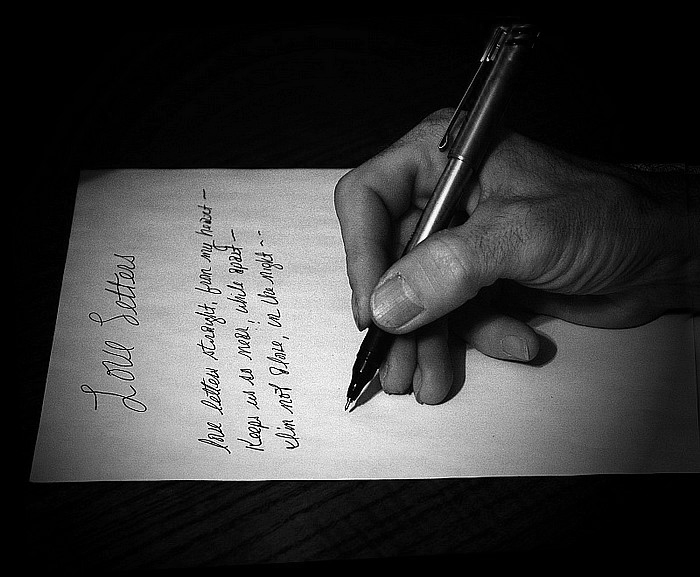 Love Letters
love letters straight, from my heart —
Keeps us so near, while apart —
I'm not alone, in the night --